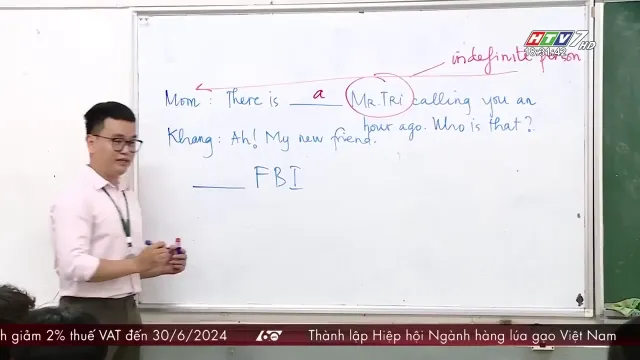 HTV7 HD
18:31:42
indefinite person
Mom : There is ____ a Mr. Tri calling you an
hour ago. Who is that?
Khang : Ah! My new friend.
____ FBI
h giảm 2% thuế VAT đến 30/6/2024 60 Thành lập Hiệp hội Ngành hàng lúa gạo Việt Nam